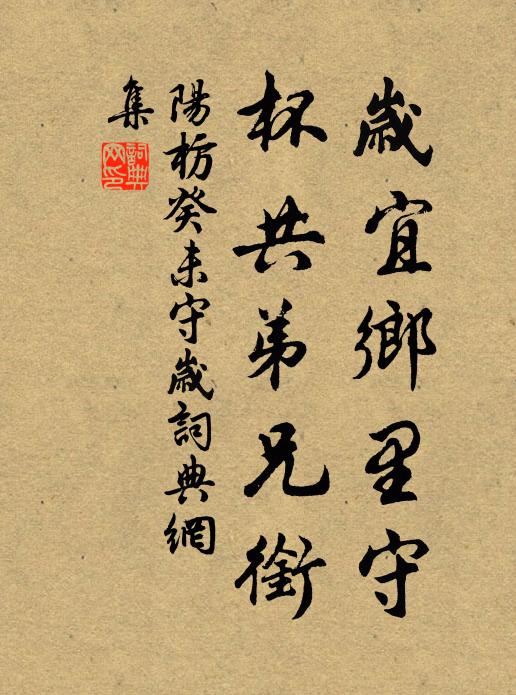 歲宜鄉里守
杯共弟兄銜
陽枋癸未守歲詞典網
集
詞典網印